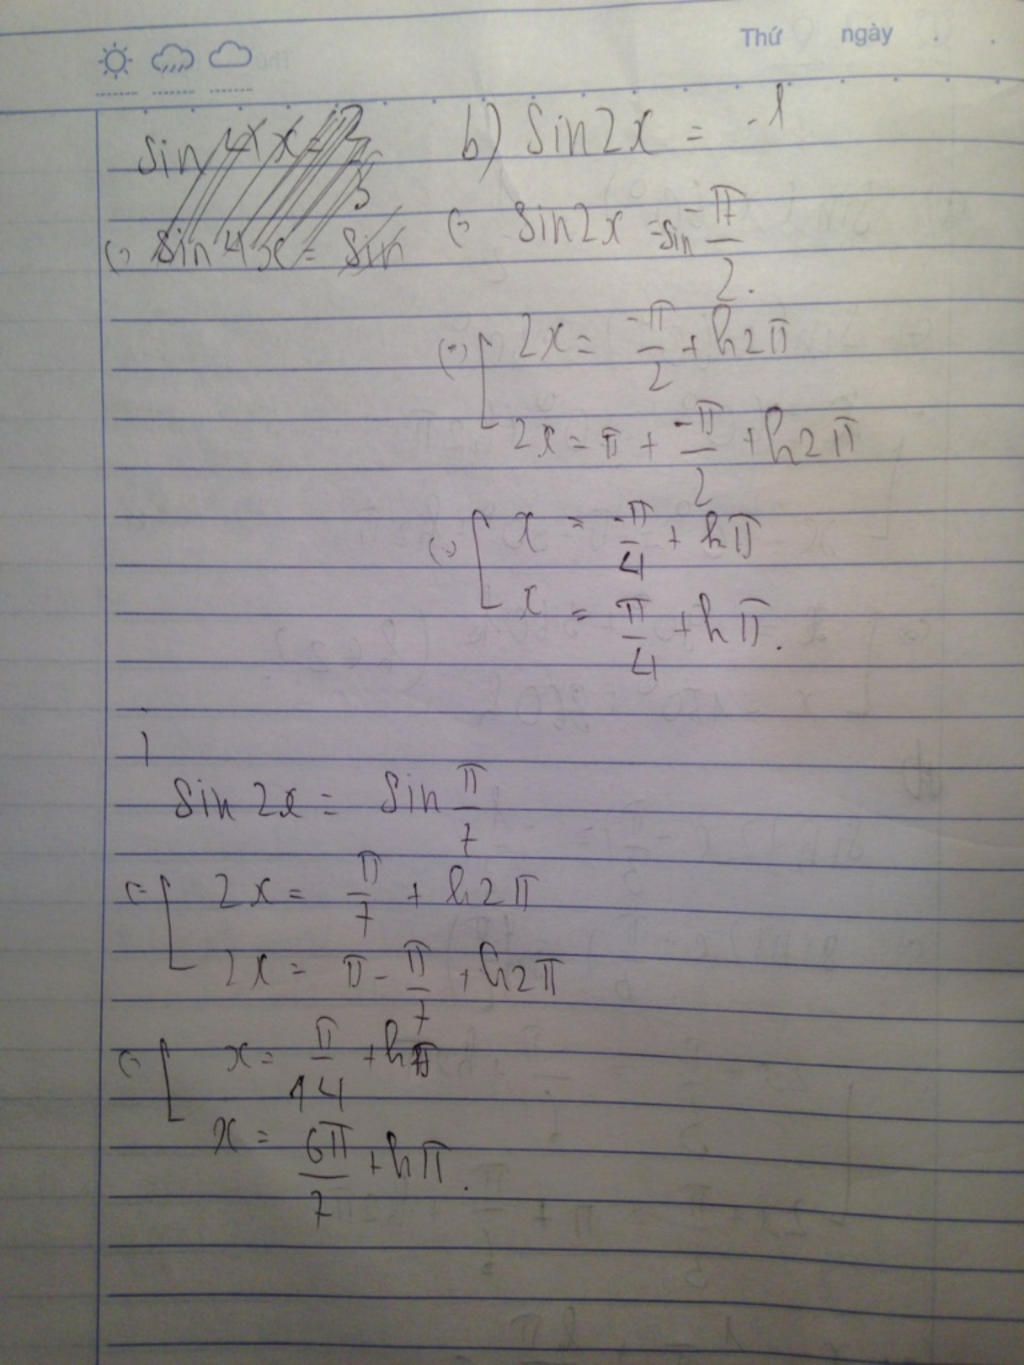 Thứ ngày
b) Sin2x = -1
(=) Sin2x = sin -π/2.
(=) [ 2x = -π/2 + k2π
2x = π + -π/2 + k2π
(=) [ x = -π/4 + kπ
x = π/4 + kπ.
Sin 2x = Sin π/7
(= [ 2x = π/7 + k2π
2x = π - π/7 + k2π
(=) [ x = π/14 + kπ
x = 6π/7 + kπ.